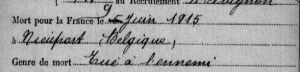 au Recrutement
Mort pour la France le 9 Juin 1915
à Nieuport Belgique,
Genre de mort Tué à l'ennemi